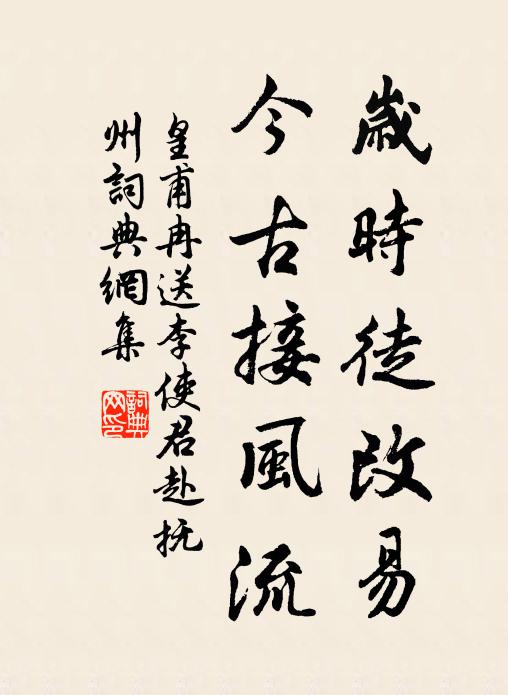 歲時徒改易
今古接風流
皇甫冉送李使君赴抚
州詞典網集
詞典
网印